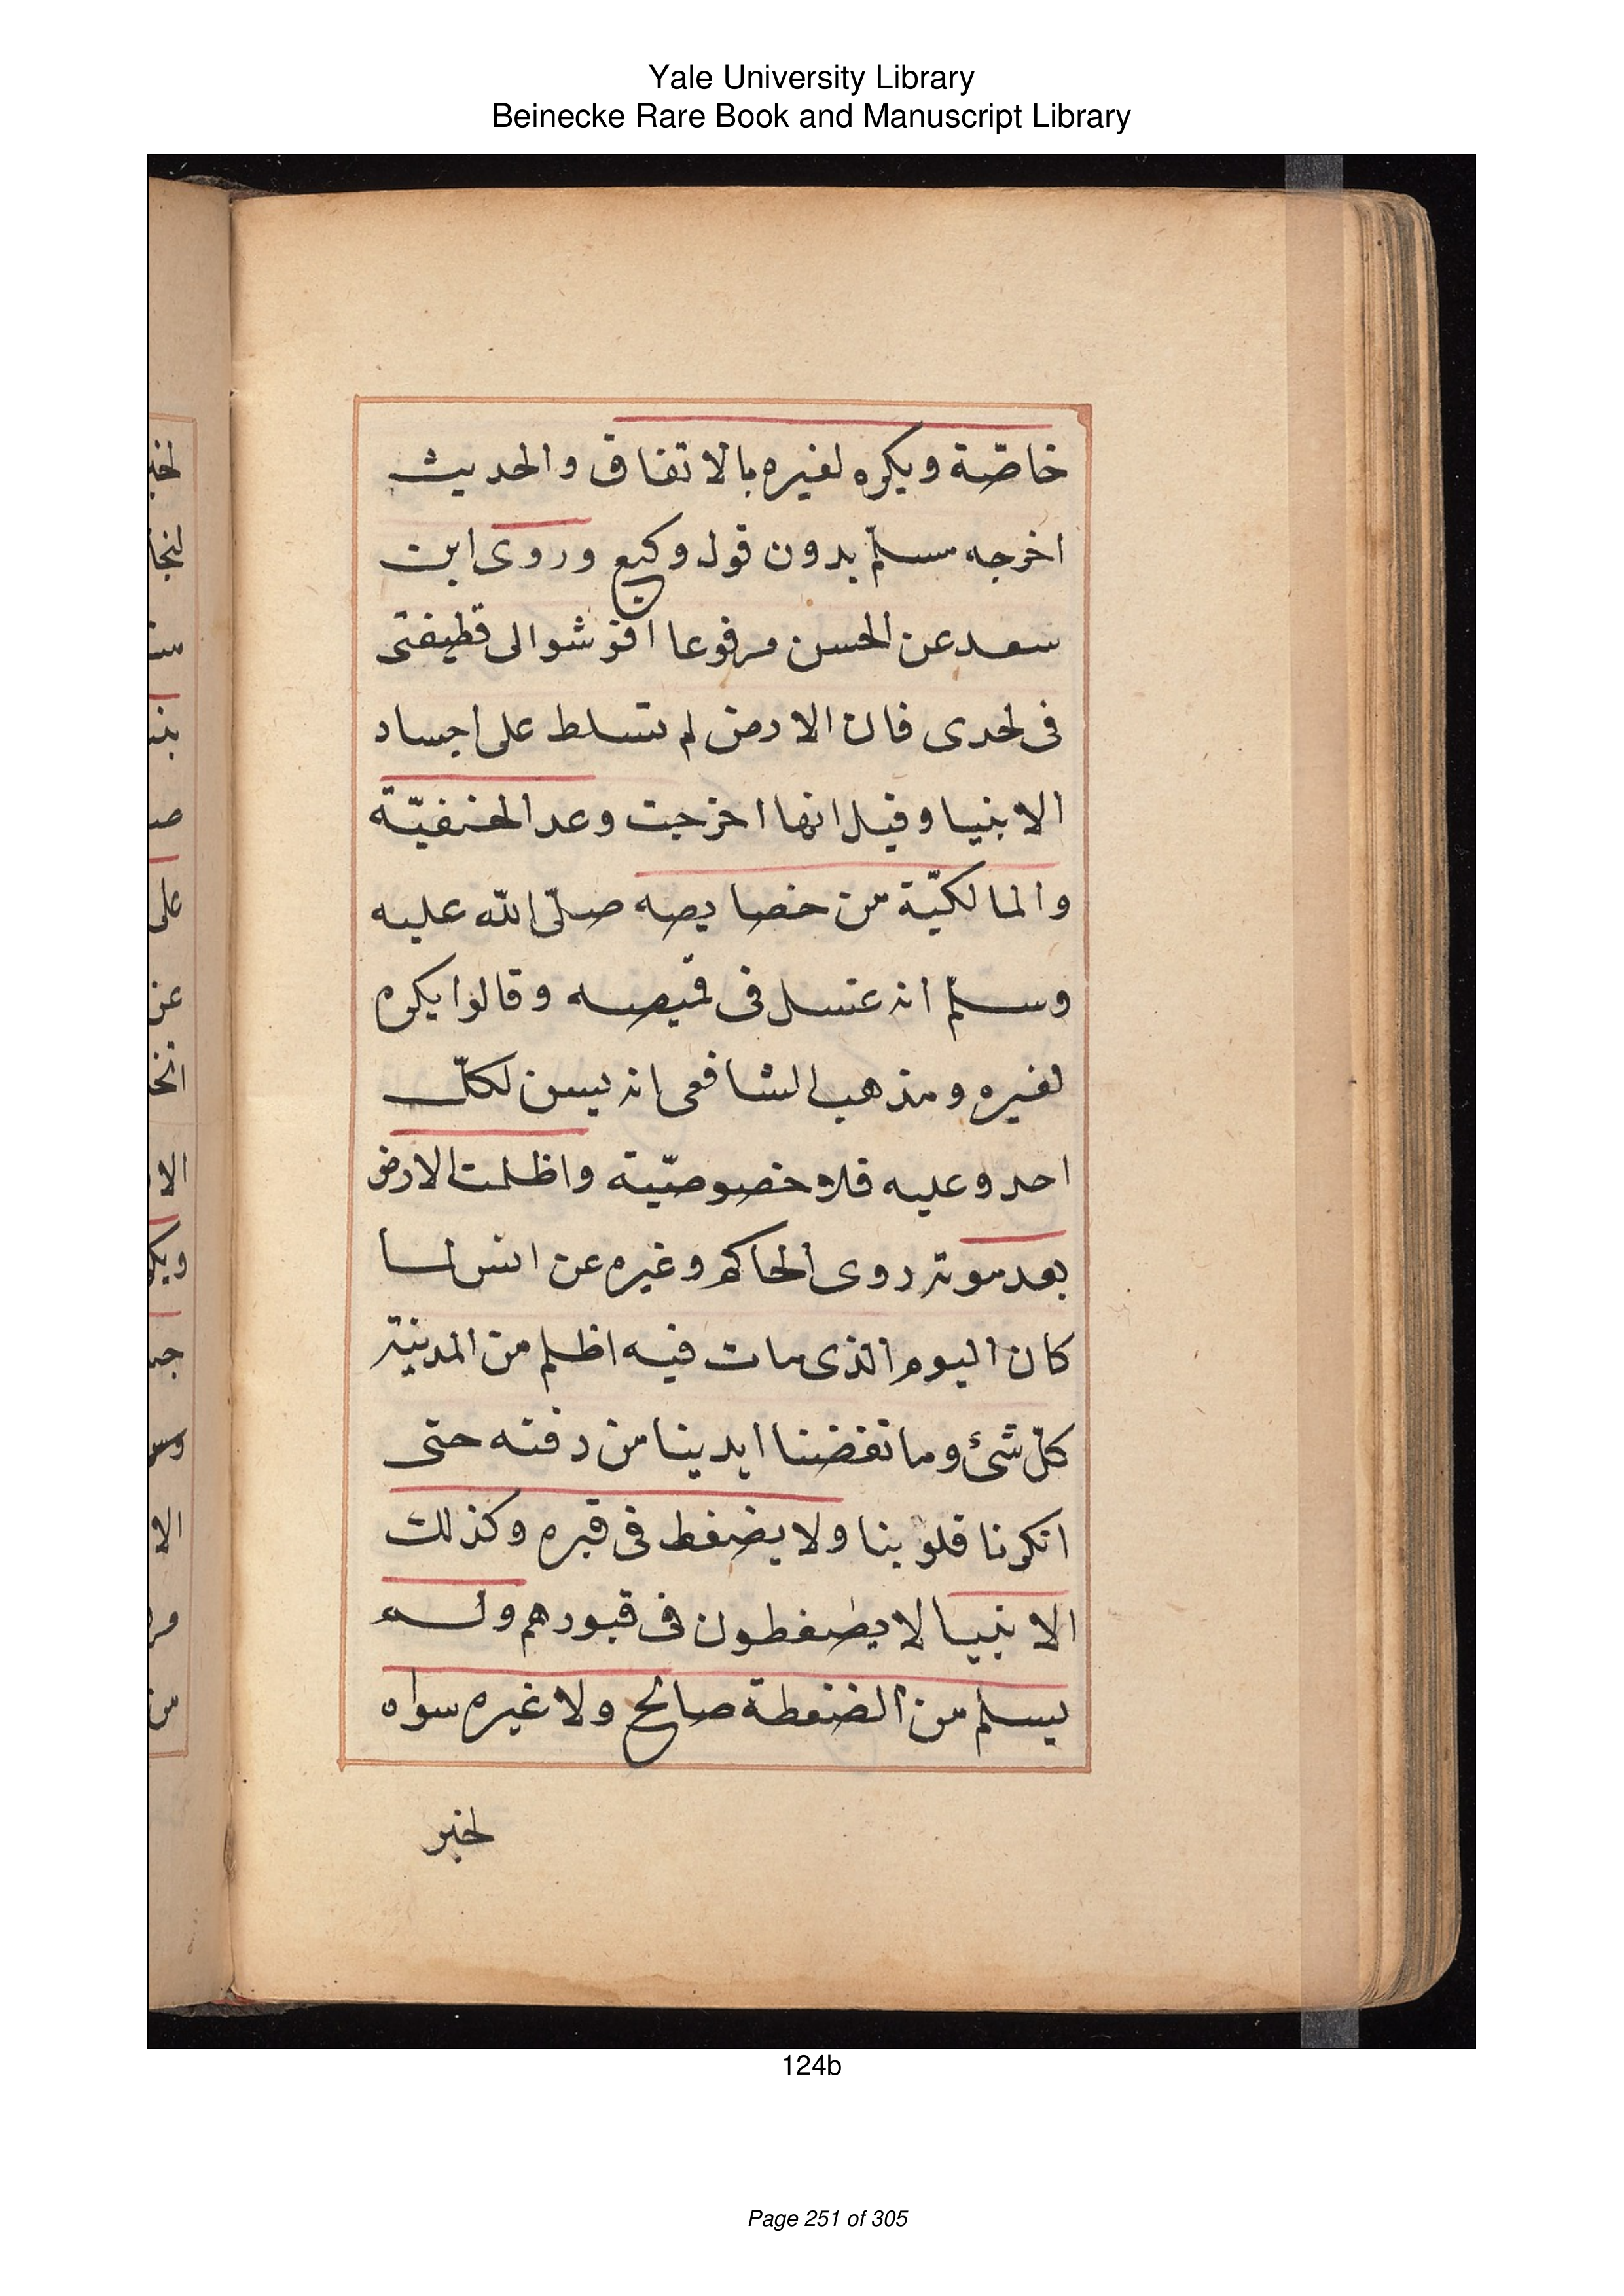 Yale University Library
Beinecke Rare Book and Manuscript Library
خاصّة ويكره لغيره بالاتفاق والحديث
اخرجه مسلمّ بدون قول وكيع وروى ابن
سعد عن الحسن مرفوعا افرشوا لى قطيفتى
فى لحدى فان الارض لم تسلط على اجساد
الانبيا وقيل انها اخرجت وعد الحنفيّة
والمالكيّة من خصايصه صلّى اللّه عليه
وسلمّ انه غسل فى قميصه وقالوا يكره
لغيره ومذهب الشافعى انه يسن لكلّ
احد وعليه فلا خصوصيّية واظلمت الارض
بعد موته روى الحاكم وغيره عن انس لما
كان اليوم الذى مات فيه اظلم من المدينة
كلّ شئ وما نفضنا ايدينا من دفنه حتى
انكرنا قلوبنا ولا يضغط فى قبره وكذلك
الانبيا لا يضغطون فى قبورهم ولم
يسلم من الضغطة صالح ولا غيره سواه
لخبر
لنجا
على
عن
اتخا
الا
ويك
الا
من
124b
Page 251 of 305